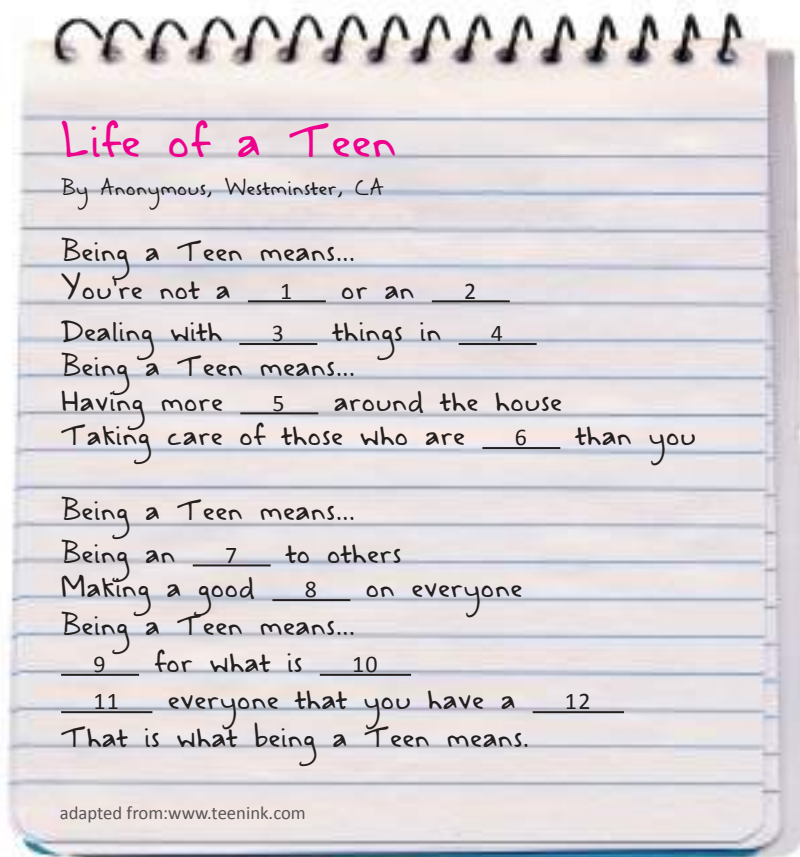 Life of a Teen
By Anonymous, Westminster, CA
Being a Teen means...
You're not a 1 or an 2
Dealing with 3 things in 4
Being a Teen means...
Having more 5 around the house
Taking care of those who are 6 than you
Being a Teen means...
Being an 7 to others
Making a good 8 on everyone
Being a Teen means...
9 for what is 10
11 everyone that you have a 12
That is what being a Teen means.
adapted from:www.teenink.com